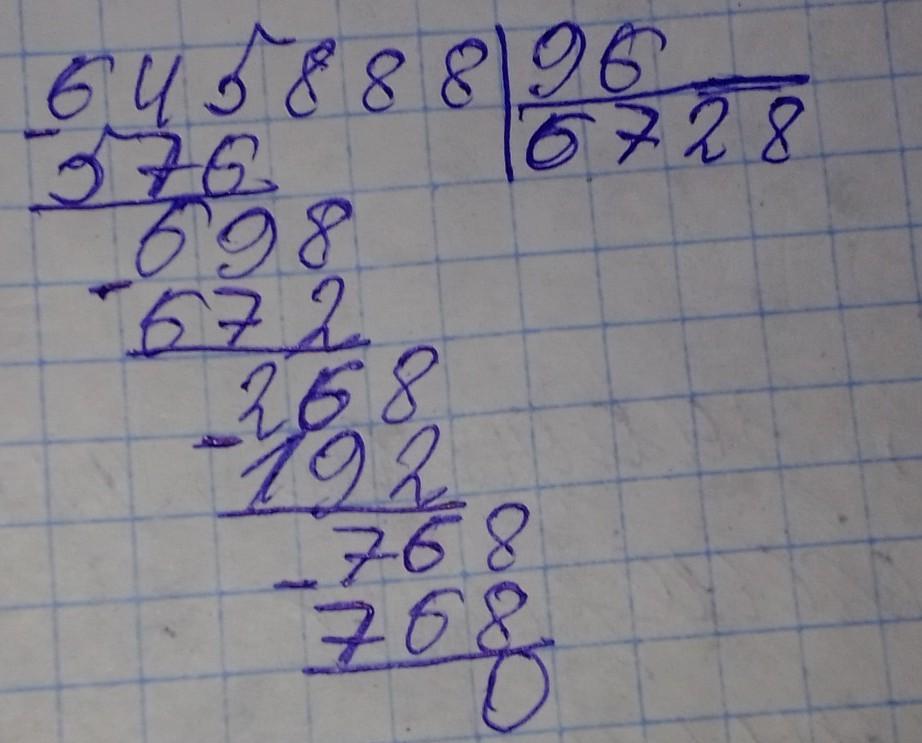 645888 96
-576 6728
698
-672
268
-192
768
-768
0